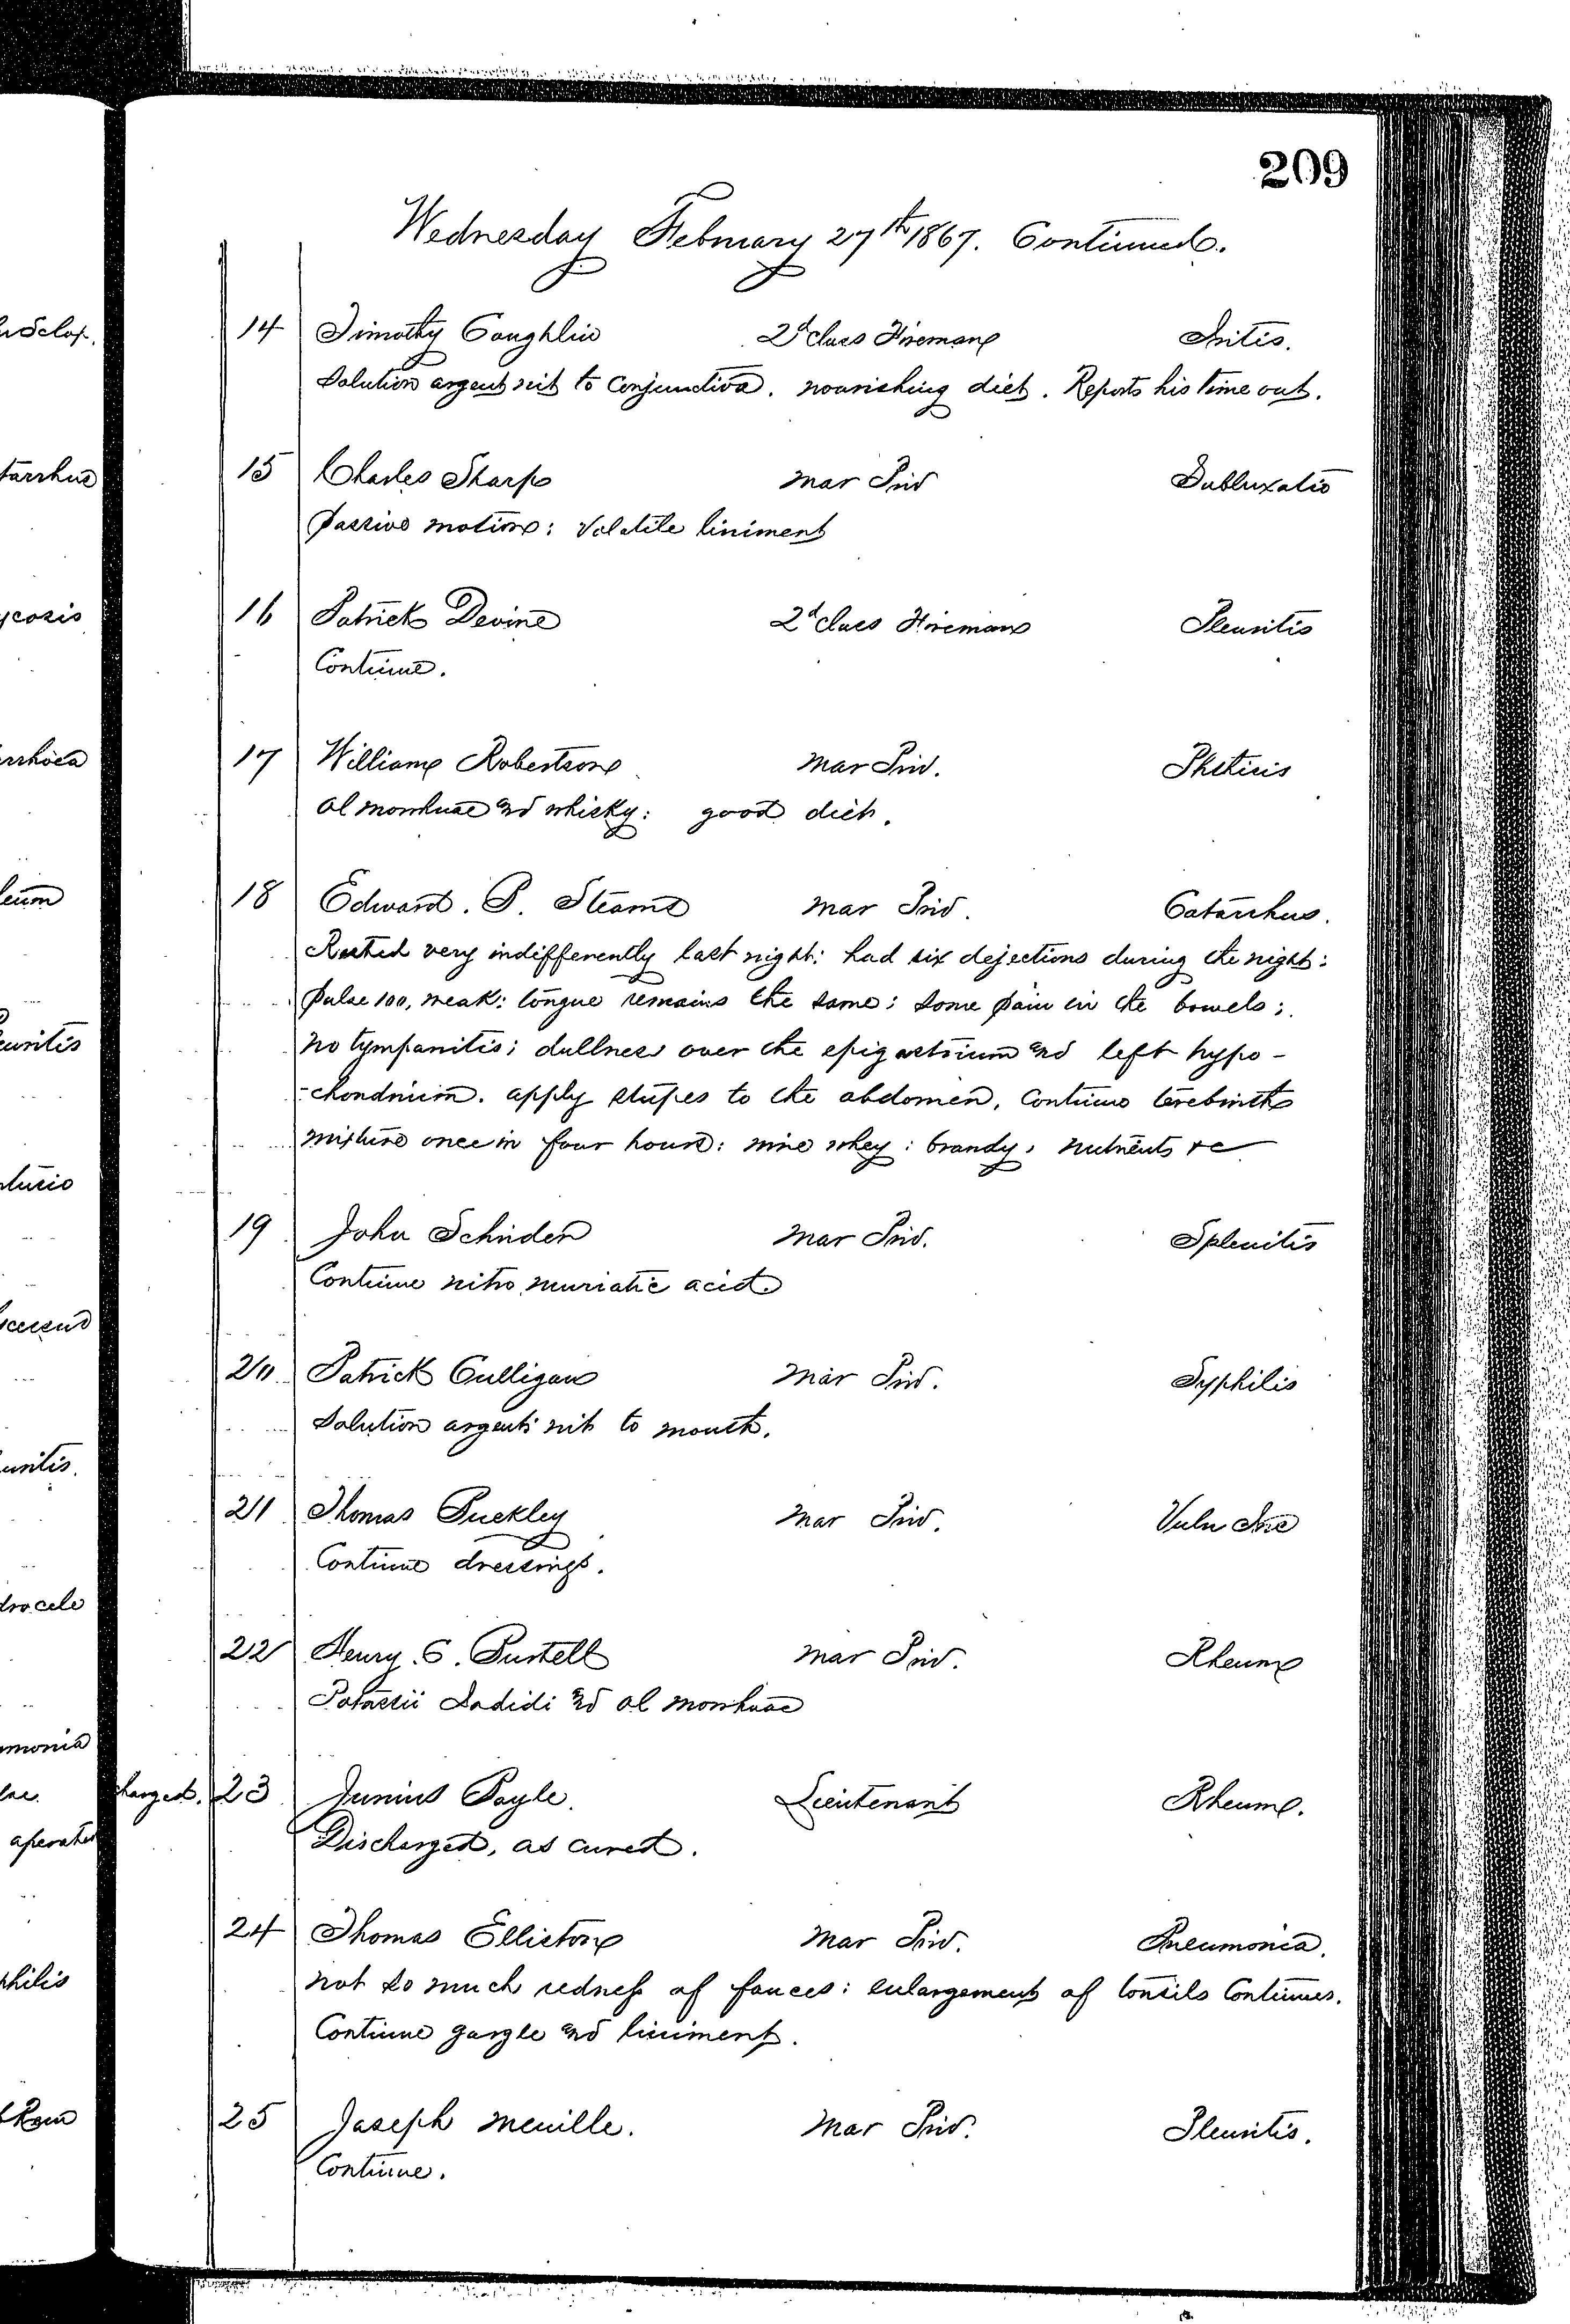 209
Wednesday February 27th 1867. Continued.
14 Timothy Coughlin 2d Class Fireman Iritis.
Solution argent nit to Conjunctiva. nourishing diet. Reports his time out.
15 Charles Sharp Mar Priv Subluxatio
Passive motion: Volatile liniment
16 Patrick Devine 2d Class Fireman Pleuritis
Continue.
17 William Robertson Mar Priv. Phthisis
Ol morrhuae and whisky: good diet.
18 Edward. P. Stearns Mar Priv. Catarrhus.
Rested very indifferently last night: had six dejections during the night:
Pulse 100, weak: tongue remains the same: some pain in the bowels;
no tympanitis; dullness over the epigastrium and left hypo-
-chondrium. apply stupes to the abdomen, Continue terebinth
mixture once in four hours: wine whey: brandy, nutrients &c
19 John Schnider Mar Priv. Splenitis
Continue nitro muriatic acid.
20 Patrick Culligan Mar Priv. Syphilis
Solution argenti nit to mouth.
21 Thomas Puckley Mar Priv. Vuln Inc
Continue dressings.
22 Henry. C. Purtell Mar Priv. Rheum
Potassii Iodidi and ol morrhuae
charged. 23 Junius Payle. Lieutenant Rheum.
Discharged, as cured.
24 Thomas Elliston Mar Priv. Pneumonia.
not so much redness of fauces: enlargement of tonsils Continues.
Continue gargle and liniment.
25 Joseph Meuille. Mar Priv. Pleuritis.
Continue.